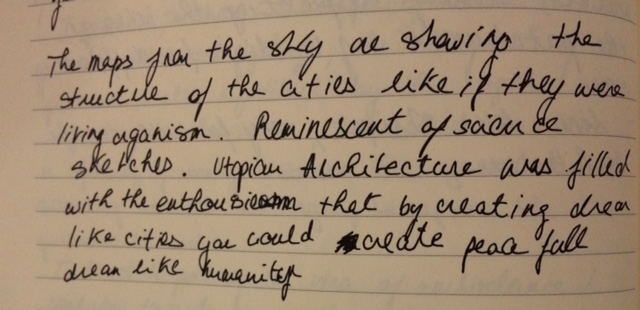 The maps from the sky are showing the
structure of the cities like if they were
living organism. Reminescent of science
sketches. Utopian Architecture was filled
with the enthousiasm that by creating dream
like cities you could create peace full
dream like humanity